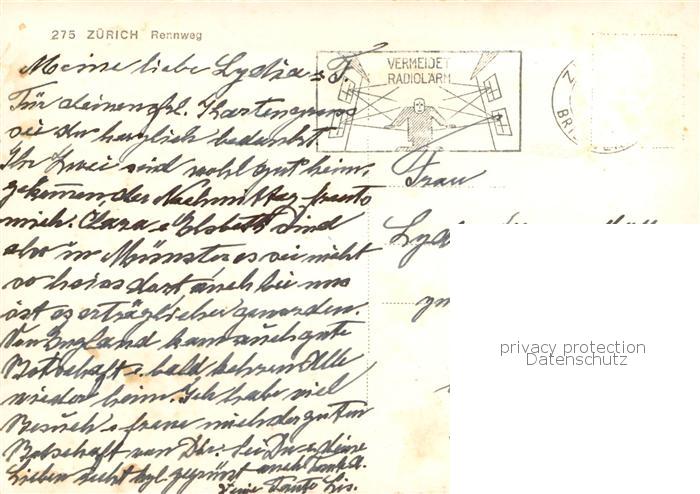 275 ZÜRICH Rennweg
VERMEIDET
RADIOLÄRM
Meine liebe Lydia & F.
Für deinen frl. Kartengruss
sei Dir herzlich bedankt
Ihr Zwei seid wohl gut heim
gekommen, der Nachmittag freute
mich. Clara & Elsbeth sind
also in Münster es sei nicht
so heiss dort auch bei uns
ist es erträglicher geworden.
Von England kam auch gute
Botschaft & bald kehren Alle
wieder heim. Ich habe viel
Besuch & freue mich der guten
Botschaft von Dir. Sei Du & deine
Lieben recht hzl. gegrüsst auch
Deine Tante Lis.
Frau
privacy protection
Datenschutz